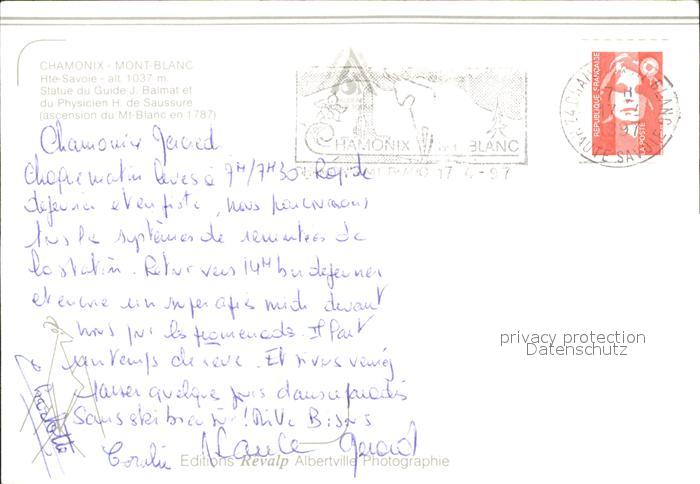 CHAMONIX - MONT-BLANC
Hte-Savoie - alt. 1037 m.
Statue du Guide J. Balmat et
du Physicien H. de Saussure
(ascension du Mt-Blanc en 1787)
Chamonix
Chaque matin levés à 7H/7H30. Rapide
dejeuner et en piste, nous parcourons
tous les systèmes de remontées de
la station. Retour vers 14H bon dejeuner
et encore un super après midi devant
nous pour les promenades. Il fait
un temps de reve. Et si vous veniez
passer quelques jours dans ce paradis
Sans ski bien sûr! Bises
Gerard
CHAMONIX Mt BLANC
17-4-97
REPUBLIQUE FRANÇAISE
LA POSTE
HAUTE SAVOIE
privacy protection
Datenschutz
Editions Revalp Albertville Photographie